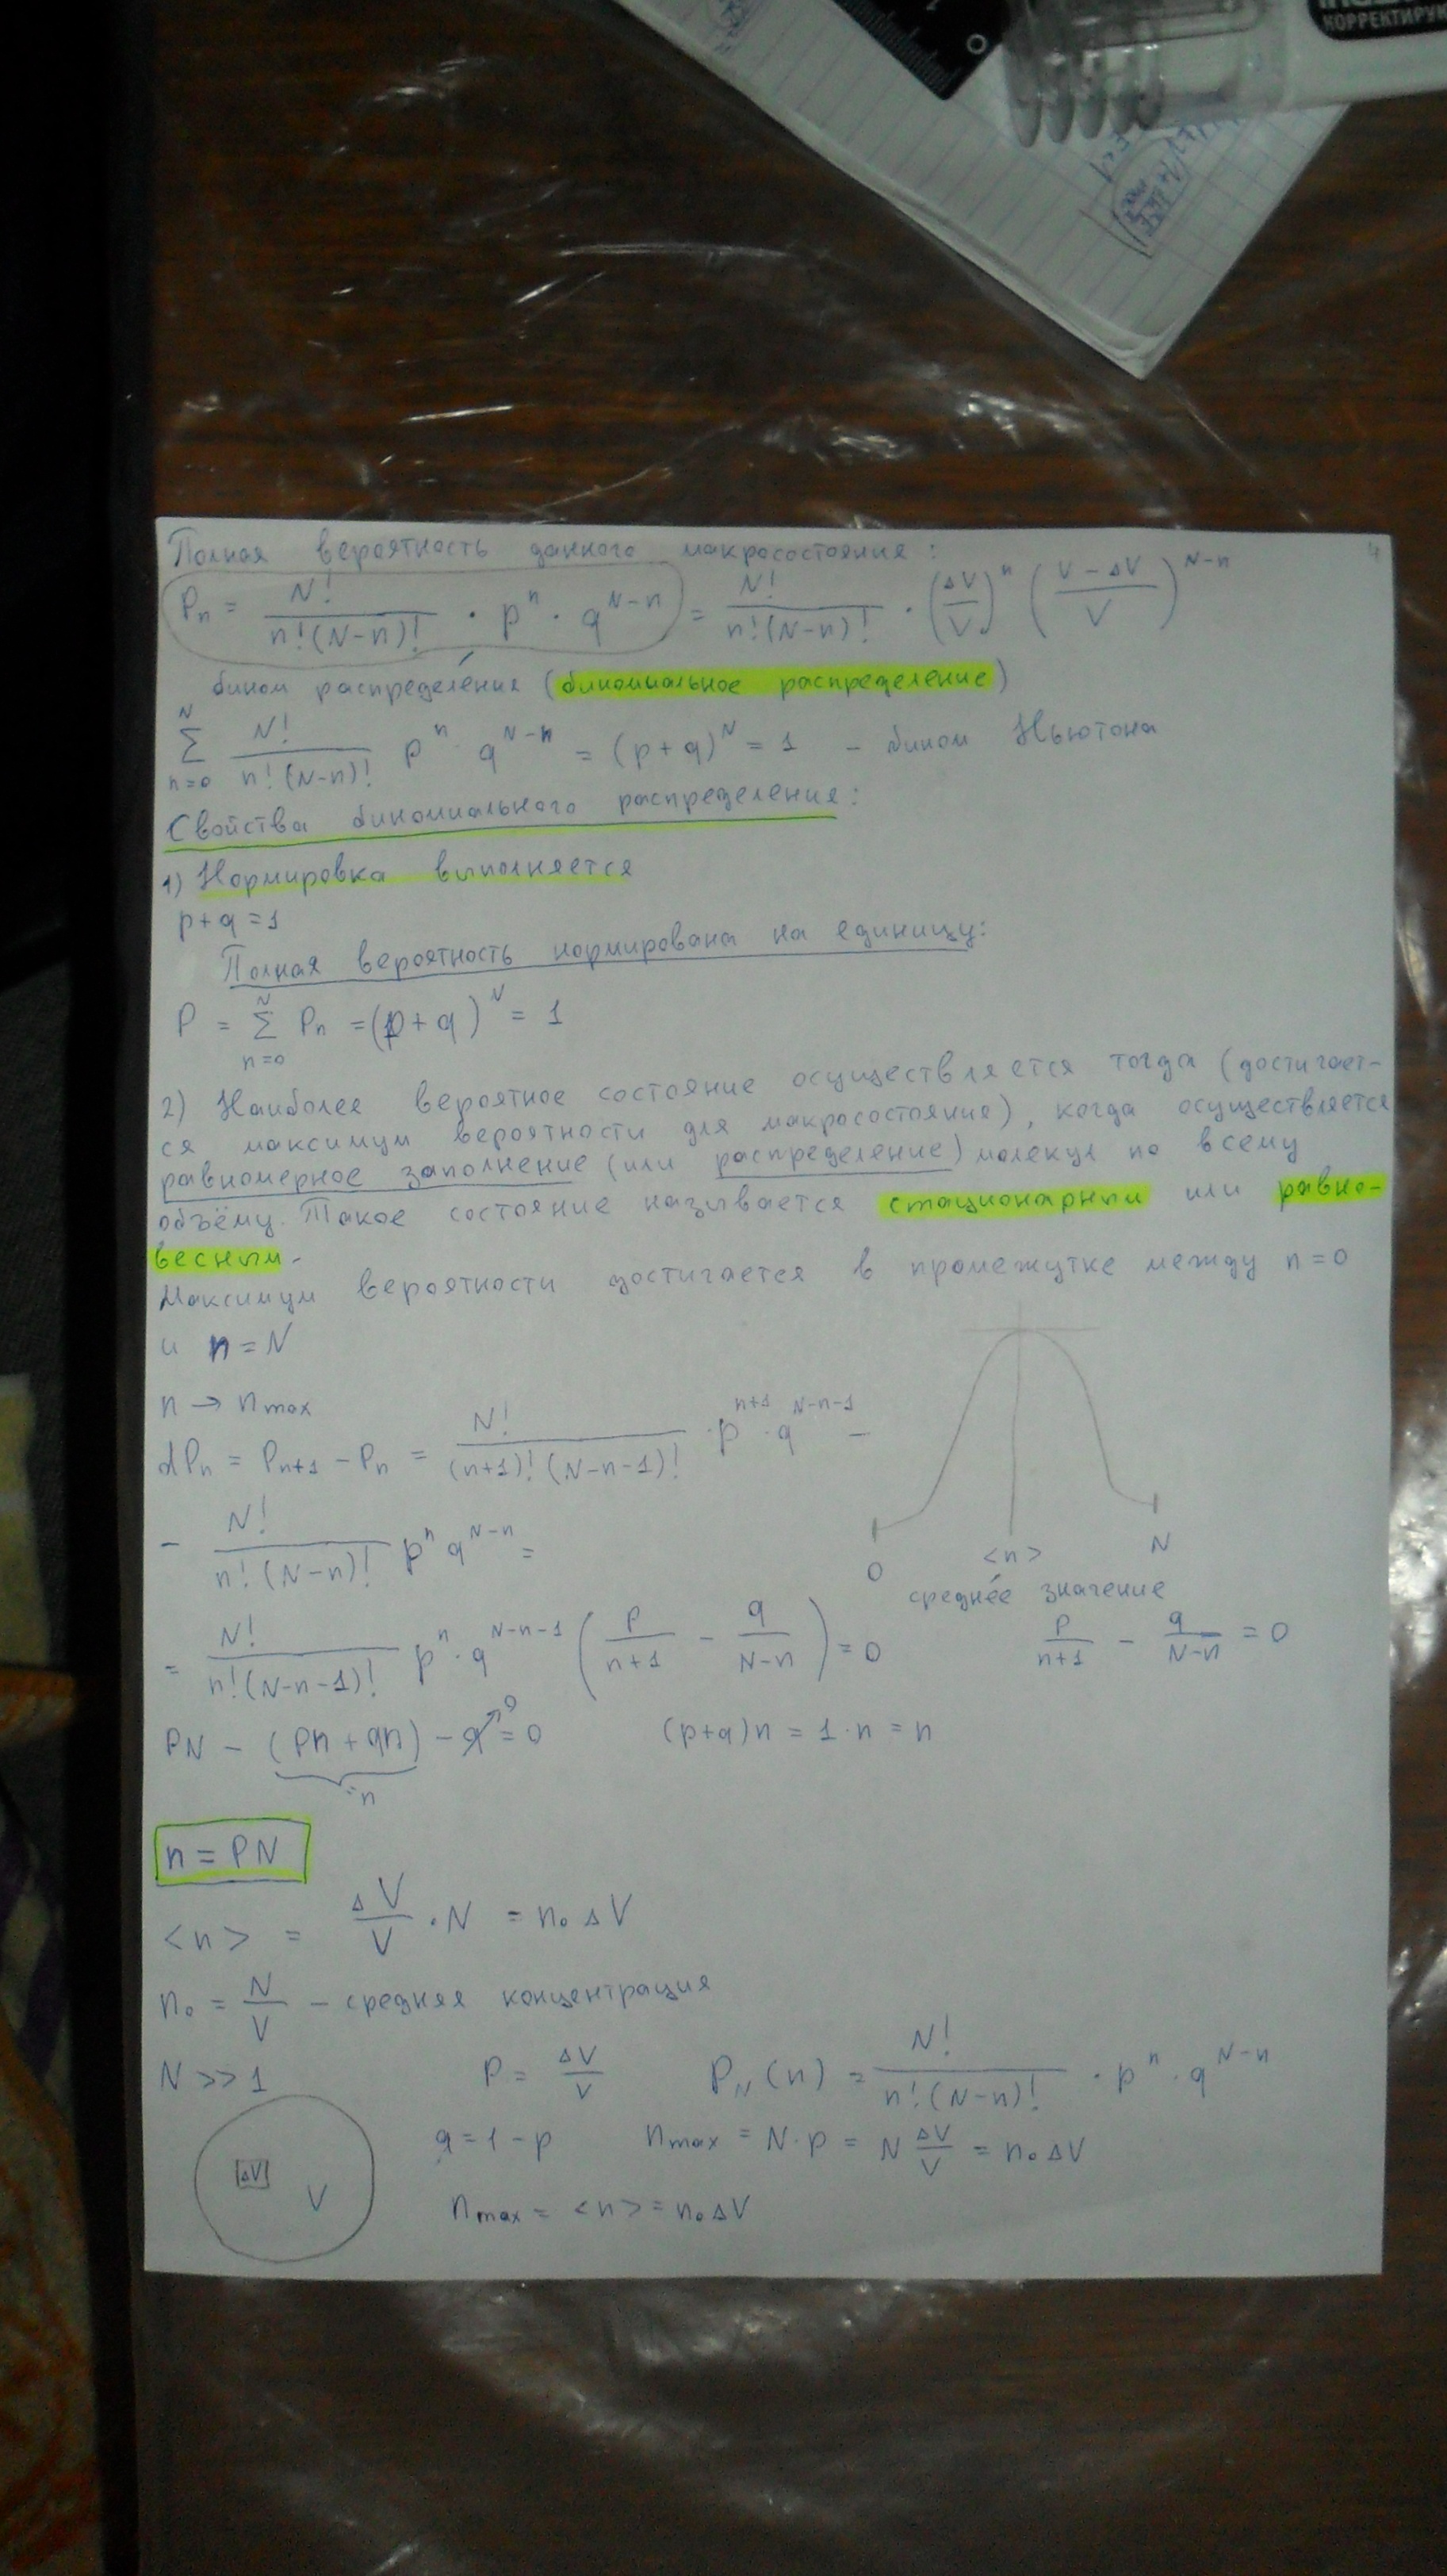 КОРРЕКТИРУЮ
4
Полная вероятность данного макросостояния:
Pn = N! / (n!(N-n)!) · p^n · q^(N-n) = N! / (n!(N-n)!) · (ΔV/V)^n ((V-ΔV)/V)^(N-n)
бином распределения (биномиальное распределение)
∑_{n=0}^{N} N! / (n!(N-n)!) p^n q^(N-n) = (p+q)^N = 1 - бином Ньютона
Свойства биномиального распределения:
1) Нормировка выполняется
p+q=1
Полная вероятность нормирована на единицу:
P = ∑_{n=0}^{N} Pn = (p+q)^N = 1
2) Наиболее вероятное состояние осуществляется тогда (достигает-
ся максимум вероятности для макросостояние), когда осуществляется
равномерное заполнение (или распределение) молекул по всему
объёму. Такое состояние называется стационарным или равно-
весным.
Максимум вероятности достигается в промежутке между n=0
и n=N
n → n max
dPn = Pn+1 - Pn = N! / ((n+1)!(N-n-1)!) · p^(n+1) · q^(N-n-1) -
- N! / (n!(N-n)!) p^n q^(N-n) =
0 <n> N
среднее значение
= N! / (n!(N-n-1)!) p^n · q^(N-n-1) (p/(n+1) - q/(N-n)) = 0
p/(n+1) - q/(N-n) = 0
PN - (Pn + qn) - q = 0
0
(p+q)n = 1·n = n
=n
n = PN
<n> = ΔV/V · N = n₀ΔV
n₀ = N/V - средняя концентрация
N >> 1
P = ΔV/V
P_N(n) = N! / (n!(N-n)!) · p^n · q^(N-n)
q = 1 - p
n max = N·p = N ΔV/V = n₀ΔV
ΔV
V
n max = <n> = n₀ΔV